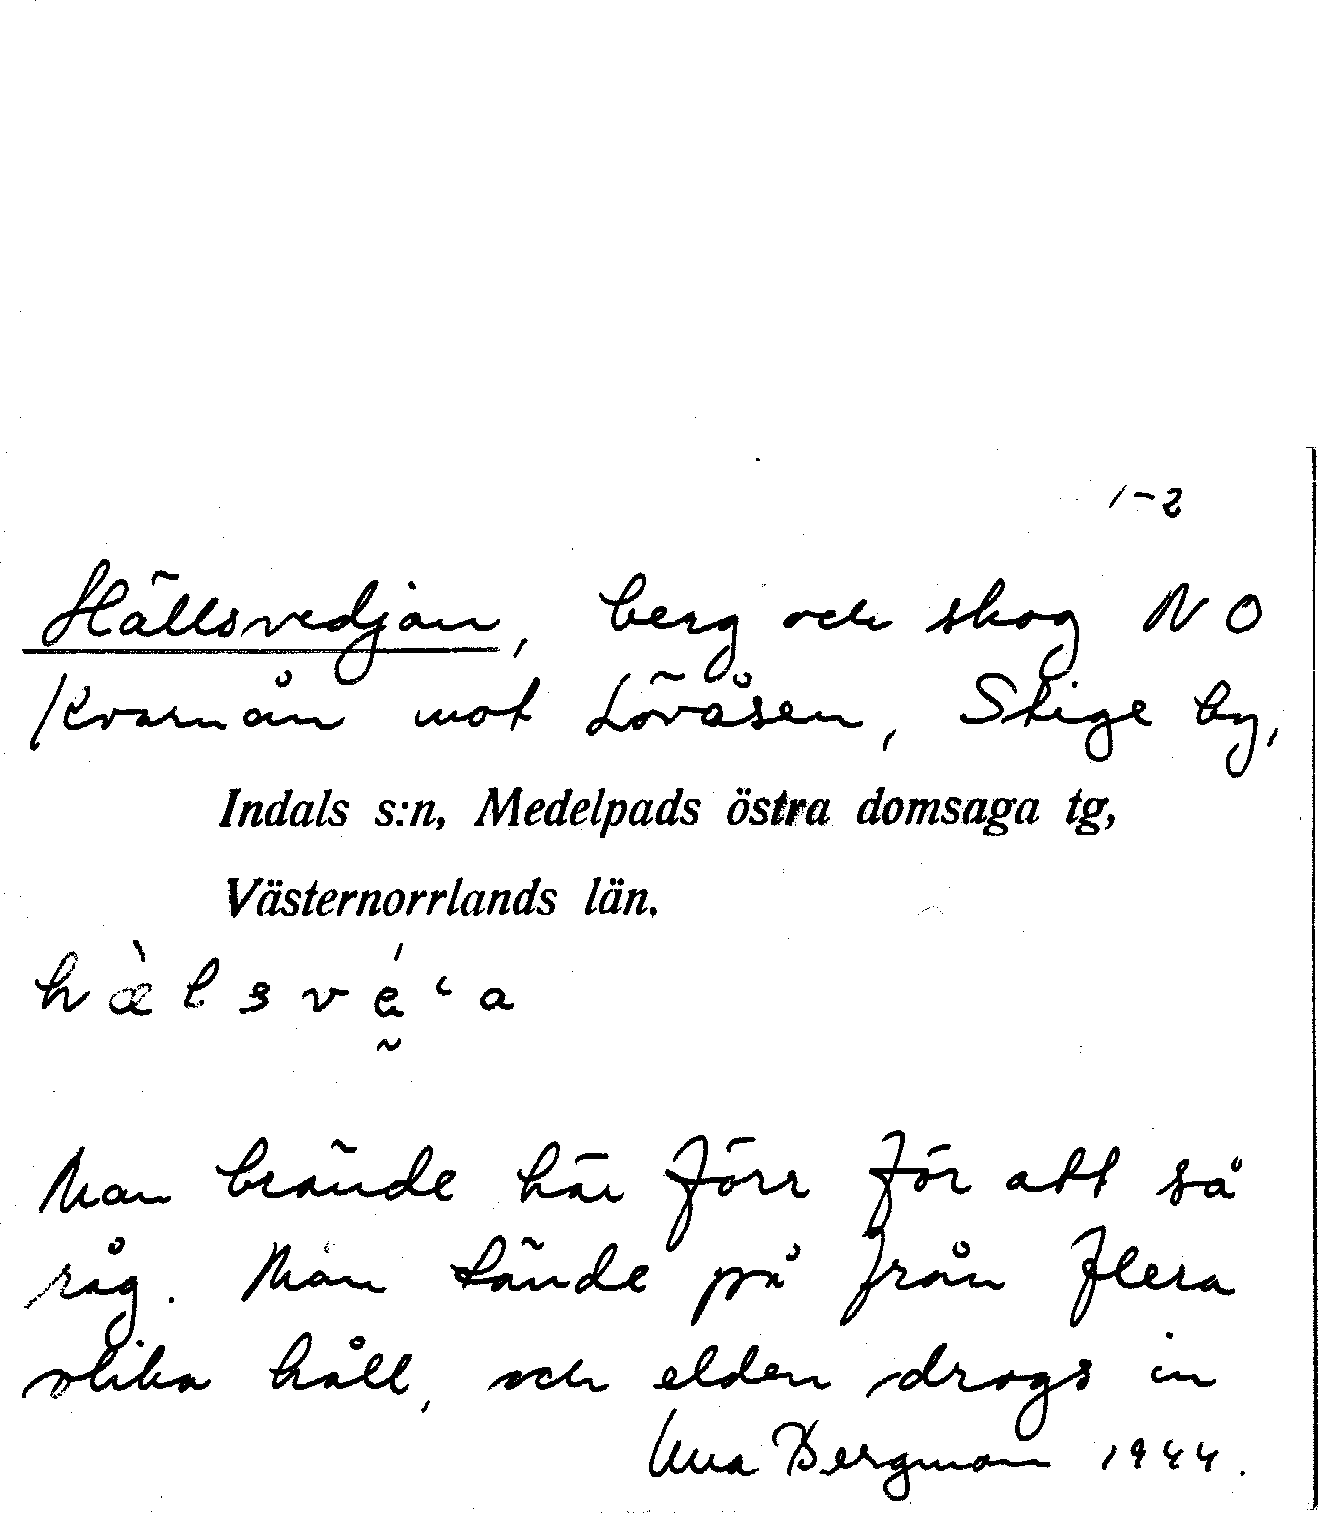 1-2
Hällsvedjan, berg och skog NO
Kvarnån mot Lövåsen, Stige by,
Indals s:n, Medelpads östra domsaga tg,
Västernorrlands län.
hæ̀lsvḛ́ʿa
Man brände här förr för att så
råg. Man tände på från flera
olika håll, och elden drogs in
Una Bergman 1944.